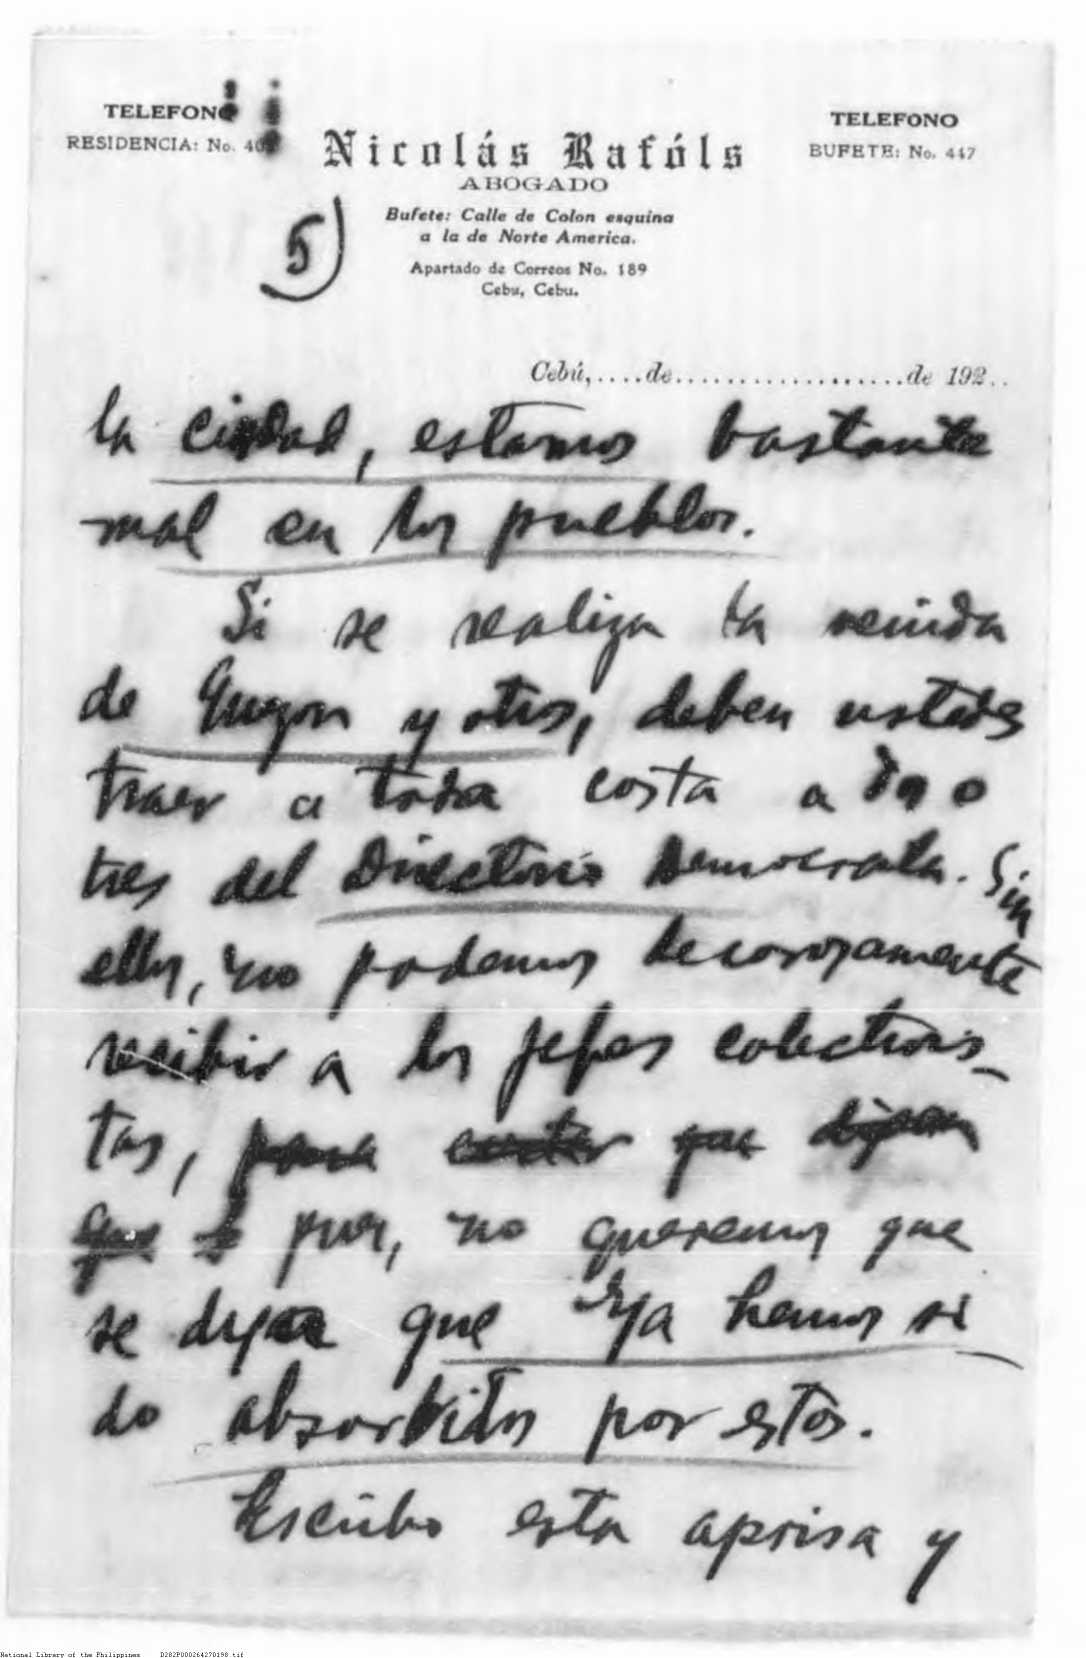 TELEFONO
RESIDENCIA: No. 40
TELEFONO
BUFETE: No. 447
Nicolás Rafóls
ABOGADO
Bufete: Calle de Colon esquina
a la de Norte America.
Apartado de Correos No. 189
Cebu, Cebu.
5)
Cebú,....de...................de 192..
la ciudad, estamos bastante
mal en los pueblos.
Si se realiza la venida
de Quezon y otros, deben ustedes
traer a toda costa a dos o
tres del Directorio Democrata. Sin
ellos, no podemos decorosamente
recibir a los jefes colectivis-
tas, para evitar que digan
que pues, no queremos que
se diga que ya hemos si
do absorbidos por estos.
Escribo esta aprisa y
National Library of the Philippines D282P000264270198.tif